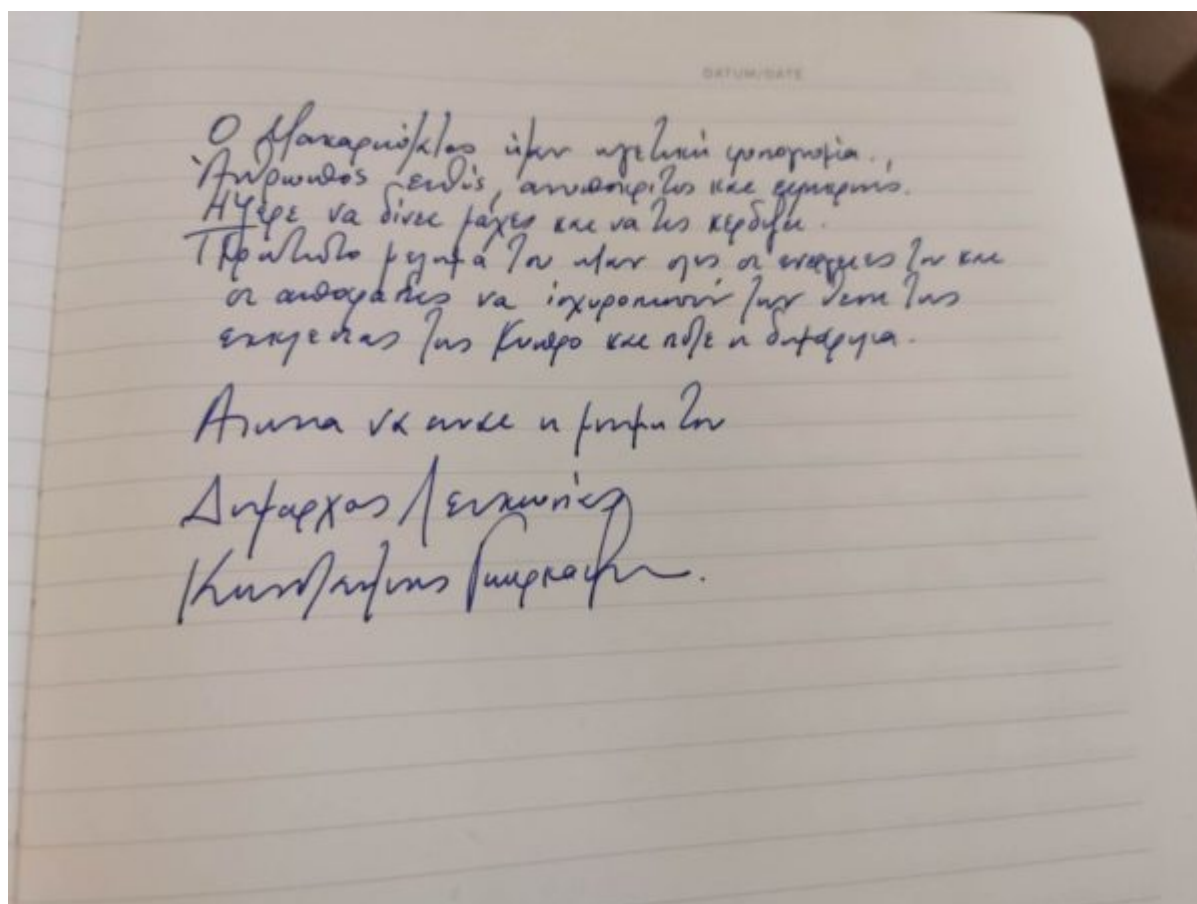 DATUM/DATE
Ο Μακαριώτατος ήταν ηγετική φυσιογνωμία.,
Άνθρωπος ευθύς, ανυπόκριτος και ειλικρινής.
Ήξερε να δίνει μάχες και να τις κερδίζει.
Πρωτίστο μέλημά του ήταν όλες οι ενέργειες του και
οι αποφάσεις να ισχυροποιούν την θέση της
εκκλησίας της Κύπρο και ποτέ η
Αιωνία να είναι η μνήμη του
Δήμαρχος Λευκωσίας
Κωνσταντίνος Γιωρκάτζης.